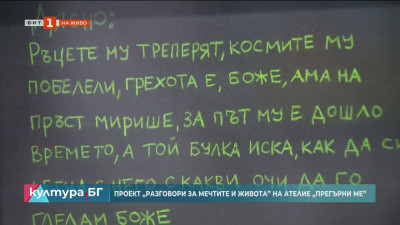 БНТ 1 НА ЖИВО
РЪЦЕТЕ МУ ТРЕПЕРЯТ, КОСМИТЕ МУ
ПОБЕЛЕЛИ, ГРЕХОТА Е, БОЖЕ, АМА НА
ПРЪСТ МИРИШЕ, ЗА ПЪТ МУ Е ДОШЛО
ВРЕМЕТО, А ТОЙ БУЛКА ИСКА, КАК ДА
С НЕГО С КАКВИ ОЧИ ДА ГО
култура БГ
ПРОЕКТ „РАЗГОВОРИ ЗА МЕЧТИТЕ И ЖИВОТА" НА АТЕЛИЕ „ПРЕГЪРНИ МЕ"
ГЛЕДАМ БОЖЕ